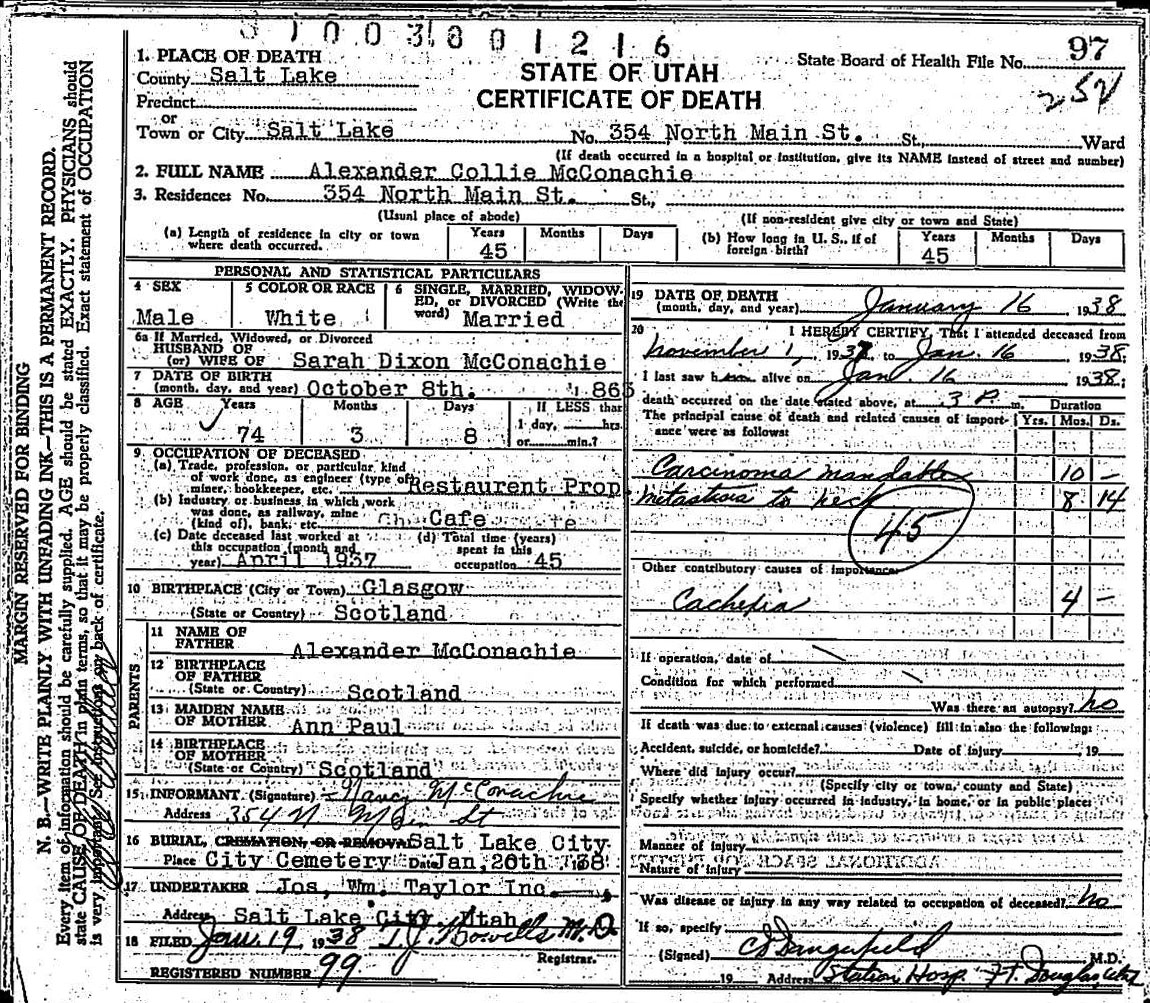 3100380 1216
MARGIN RESERVED FOR BINDING
N. B.—WRITE PLAINLY WITH UNFADING INK—THIS IS A PERMANENT RECORD.
Every item of information should be carefully supplied. AGE should be stated EXACTLY. PHYSICIANS should
state CAUSE OF DEATH in plain terms, so that it may be properly classified. Exact statement of OCCUPATION
is very important. See instructions on back of certificate.
1. PLACE OF DEATH
County Salt Lake
Precinct
or
Town or City Salt Lake
STATE OF UTAH
CERTIFICATE OF DEATH
State Board of Health File No. 97
252
No. 354 North Main St. St., Ward
(If death occurred in a hospital or institution, give its NAME instead of street and number)
2. FULL NAME Alexander Collie McConachie
3. Residence: No. 354 North Main St. St.,
(Usual place of abode) (If non-resident give city or town and State)
(a) Length of residence in city or town where death occurred. Years 45 Months Days
(b) How long in U. S., if of foreign birth? Years 45 Months Days
PERSONAL AND STATISTICAL PARTICULARS
4 SEX Male
5 COLOR OR RACE White
6 SINGLE, MARRIED, WIDOWED, or DIVORCED (Write the word) Married
6a If Married, Widowed, or Divorced
HUSBAND OF
(or) WIFE OF Sarah Dixon McConachie
7 DATE OF BIRTH
(month, day, and year) October 8th. 1863
8 AGE Years 74 Months 3 Days 8 If LESS than 1 day, hrs. or min.?
9. OCCUPATION OF DECEASED
(a) Trade, profession, or particular kind
of work done, as engineer (type of
miner, bookkeeper, etc. Restaurent Prop
(b) Industry or business in which work
was done, as railway, mine
(kind of), bank, etc. Cafe
(c) Date deceased last worked at
this occupation (month and
year) April 1937
(d) Total time (years)
spent in this
occupation 45
10 BIRTHPLACE (City or Town) Glasgow
(State or Country) Scotland
PARENTS
11 NAME OF
FATHER Alexander McConachie
12 BIRTHPLACE
OF FATHER
(State or Country) Scotland
13 MAIDEN NAME
OF MOTHER Ann Paul
14 BIRTHPLACE
OF MOTHER
(State or Country) Scotland
15 INFORMANT (Signature) Nancy McConachie
Address 354 N Main St
16 BURIAL, CREMATION, OR REMOVAL Salt Lake City
Place City Cemetery Date Jan, 20th 1938
17 UNDERTAKER Jos, Wm. Taylor Inc.
Address Salt Lake City Utah
18 FILED Jan. 19 1938 T. J. Howells M.D.
Registrar.
REGISTERED NUMBER 99
19 DATE OF DEATH
(month, day, and year) January 16 1938
20 I HEREBY CERTIFY, That I attended deceased from
November 1, 1937, to Jan. 16 1938;
I last saw h alive on Jan. 16 1938;
death occurred on the date stated above, at 3 P. m. Duration
The principal cause of death and related causes of importance were as follows: Yrs. Mos. Ds.
Carcinoma mandable 10 —
Metastasis to neck 8 14
45
Other contributory causes of importance:
Cachexia 4 —
If operation, date of
Condition for which performed
Was there an autopsy? no
If death was due to external causes (violence) fill in also the following:
Accident, suicide, or homicide? Date of injury 19
Where did injury occur?
(Specify city or town, county and State)
Specify whether injury occurred in industry, in home, or in public place:
Manner of injury
Nature of injury
Was disease or injury in any way related to occupation of deceased? No
If so, specify
(Signed) C S Dangerfield M.D.
19 Address Station Hosp. Ft. Douglas, Utah